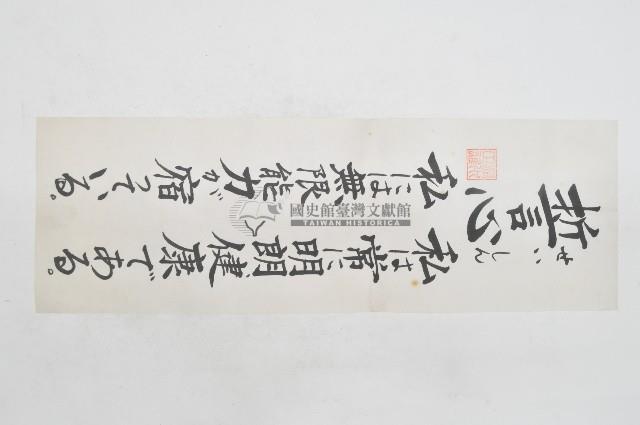 誓心
せいしん
私は常に明朗健康である。
私には無限能力が宿っている。
國史館臺灣文獻館
TAIWAN HISTORICA